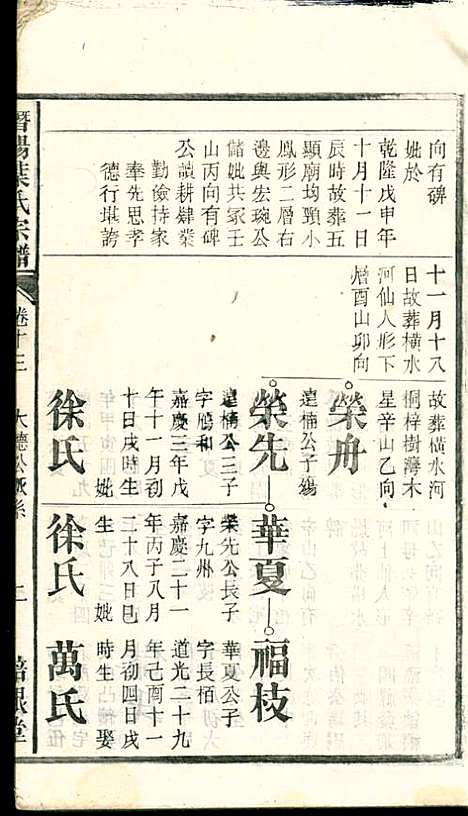 向有碑
妣於
乾隆戊申年
十月十一日
辰時故葬五
顯廟均頸小
鳳形二層右
邊與宏琬公
儲妣共冢壬
山丙向有碑
公讀耕肆業
勤儉持家
奉先思孝
德行堪誇
十一月十八
日故葬橫水
河仙人形下
嶒酉山卯向
故葬橫水河
桐梓樹灣木
星辛山乙向
榮舟
達楠公子殤
榮先
達楠公三子
字鴈和
嘉慶三年戊
午十一月初
十日戌時生
妣
徐氏
華夏
榮先公長子
字九州
嘉慶二十一
年丙子八月
二十八日巳
生 妣
徐氏
福枝
華夏公子
字長栢
道光二十九
年己酉十一
月初四日戌
時生 娶
萬氏
葉氏宗譜
卷十三
大德公厥系